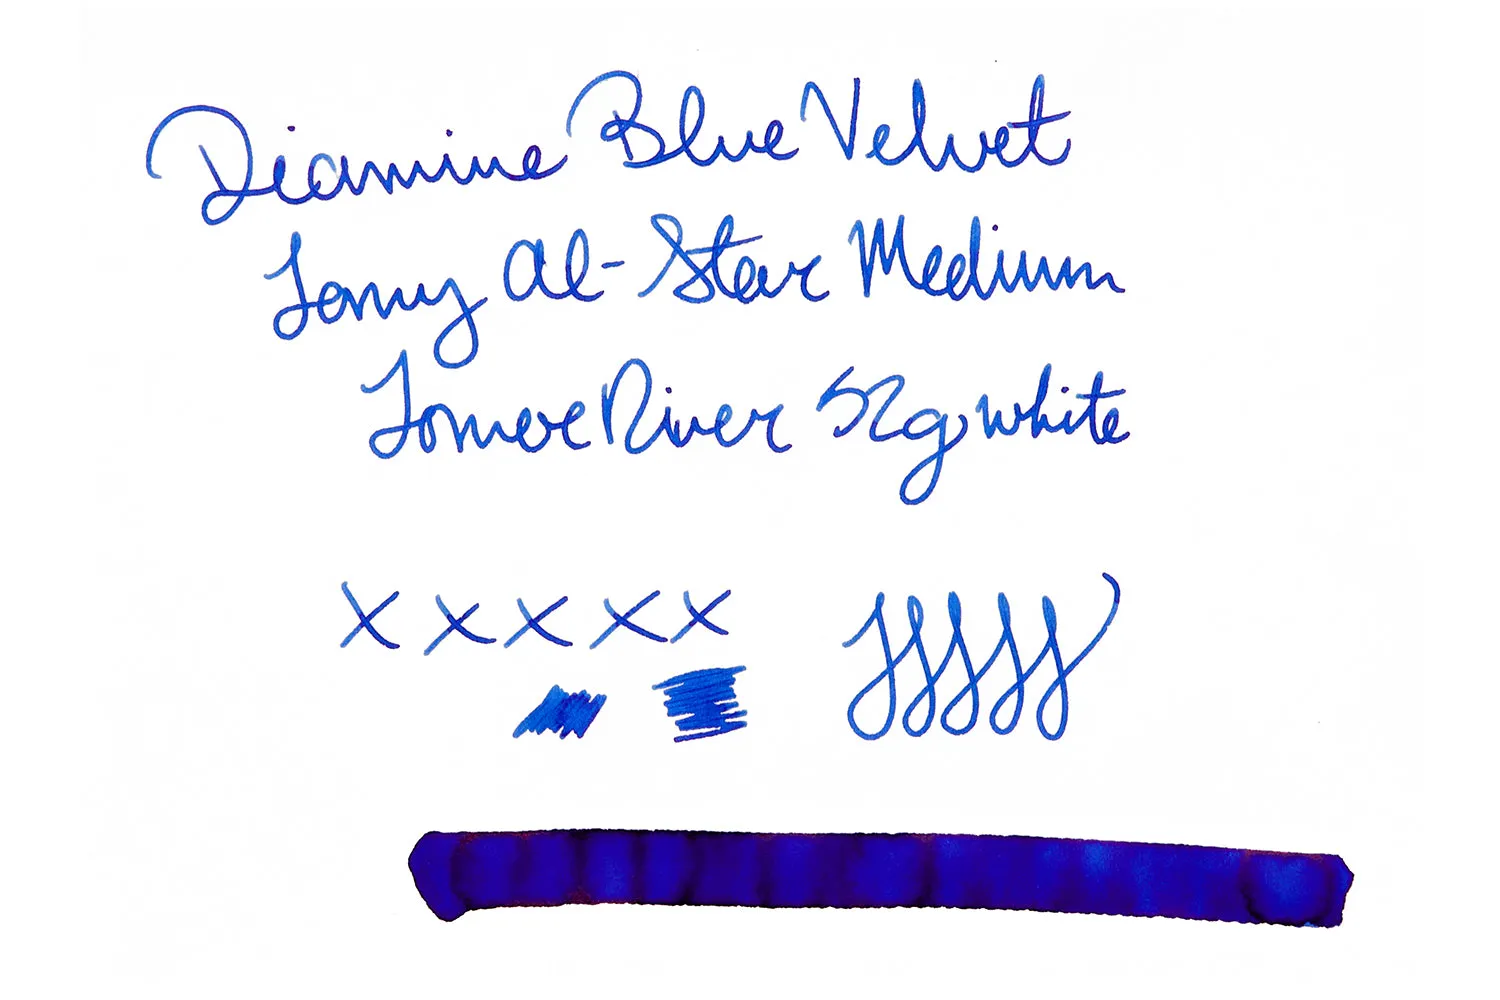 Diamine Blue Velvet
Lamy Al-Star Medium
Tomoe River 52g white
x x x x x